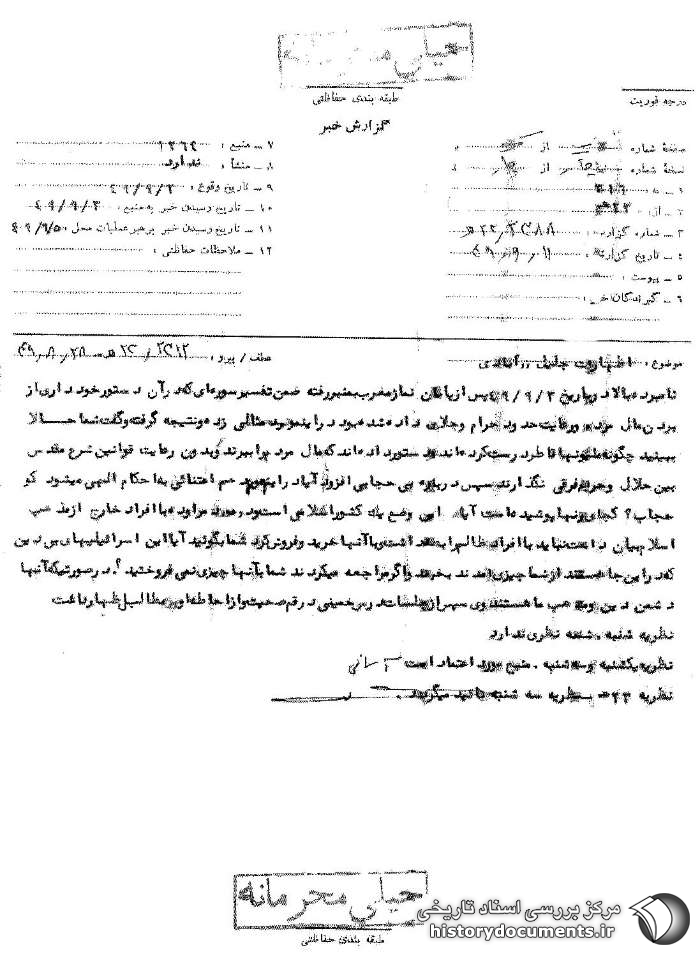 خیلی محرمانه
طبقه بندی حفاظتی
درجه فوریت
گزارش خبر
صفحهٔ شماره از
نسخهٔ شماره از
۱ ـ به :
۲ ـ از :
۳ ـ شماره گزارش :
۴ ـ تاریخ گزارش :
۵ ـ پیوست :
۶ ـ گیرندگان خبر :
۷ ـ منبع : ۱۳۶۴
۸ ـ منشأ : ندارد
۹ ـ تاریخ وقوع : ۴۹/۹/۳
۱۰ ـ تاریخ رسیدن خبر به منبع : ۴۹/۹/۳
۱۱ ـ تاریخ رسیدن خبر برهبر عملیات محل : ۴۹/۹/۵
۱۲ ـ ملاحظات حفاظتی :
موضوع : اظهارات جلیل
عطف / پیرو :
نامبرده بالا در تاریخ ۴۹/۹/۳ پس از پایان نماز مغرب به منبر رفته ضمن تفسیر سوره‌ای که در آن دستور خودداری از
بردن مال مردم و رعایت حدود حرام و حلالی داده شده بود در اینمورد مثالی زده و نتیجه گرفته و گفت شما حالا
ببینید چگونه قاطر درست کرده‌اند و دستور داده‌اند که مال مردم را ببرند و بدون رعایت قوانین شرع مقدس
بین حلال و حرام فرقی نگذارند سپس درباره بی حجابی افزود آیا در اینمورد هم اعتنائی به احکام الهی میشود کو
حجاب ؟ کجای پوشیده است آیا این وضع یک کشور اسلامی است در مورد مراوده با افراد خارج از مذهب
اسلام بیان داشت نباید با افراد ظالم داشته و با آنها خرید و فروش کرد شما بگوئید آیا این اسرائیلیهای بی دین
که در این جا هستند از شما چیزی آمدند بخرند و اگر مراجعه میکردند شما با آنها چیزی نمی فروختید ؟ . در صورتیکه آنها
دشمن دین و مذهب ما هستند وی سپس از جلسات درس خمینی در قم صحبت و از خاطه مطالبی اظهار داشت
نظریه شنبه . شنبه نظری ندارد
نظریه یکشنبه و سه شنبه . منبع مورد اعتماد است
نظریه ۲۳ هـ نظریه سه شنبه تائید میگردد .
خیلی محرمانه
طبقه بندی حفاظتی
مرکز بررسی اسناد تاریخی
historydocuments.ir